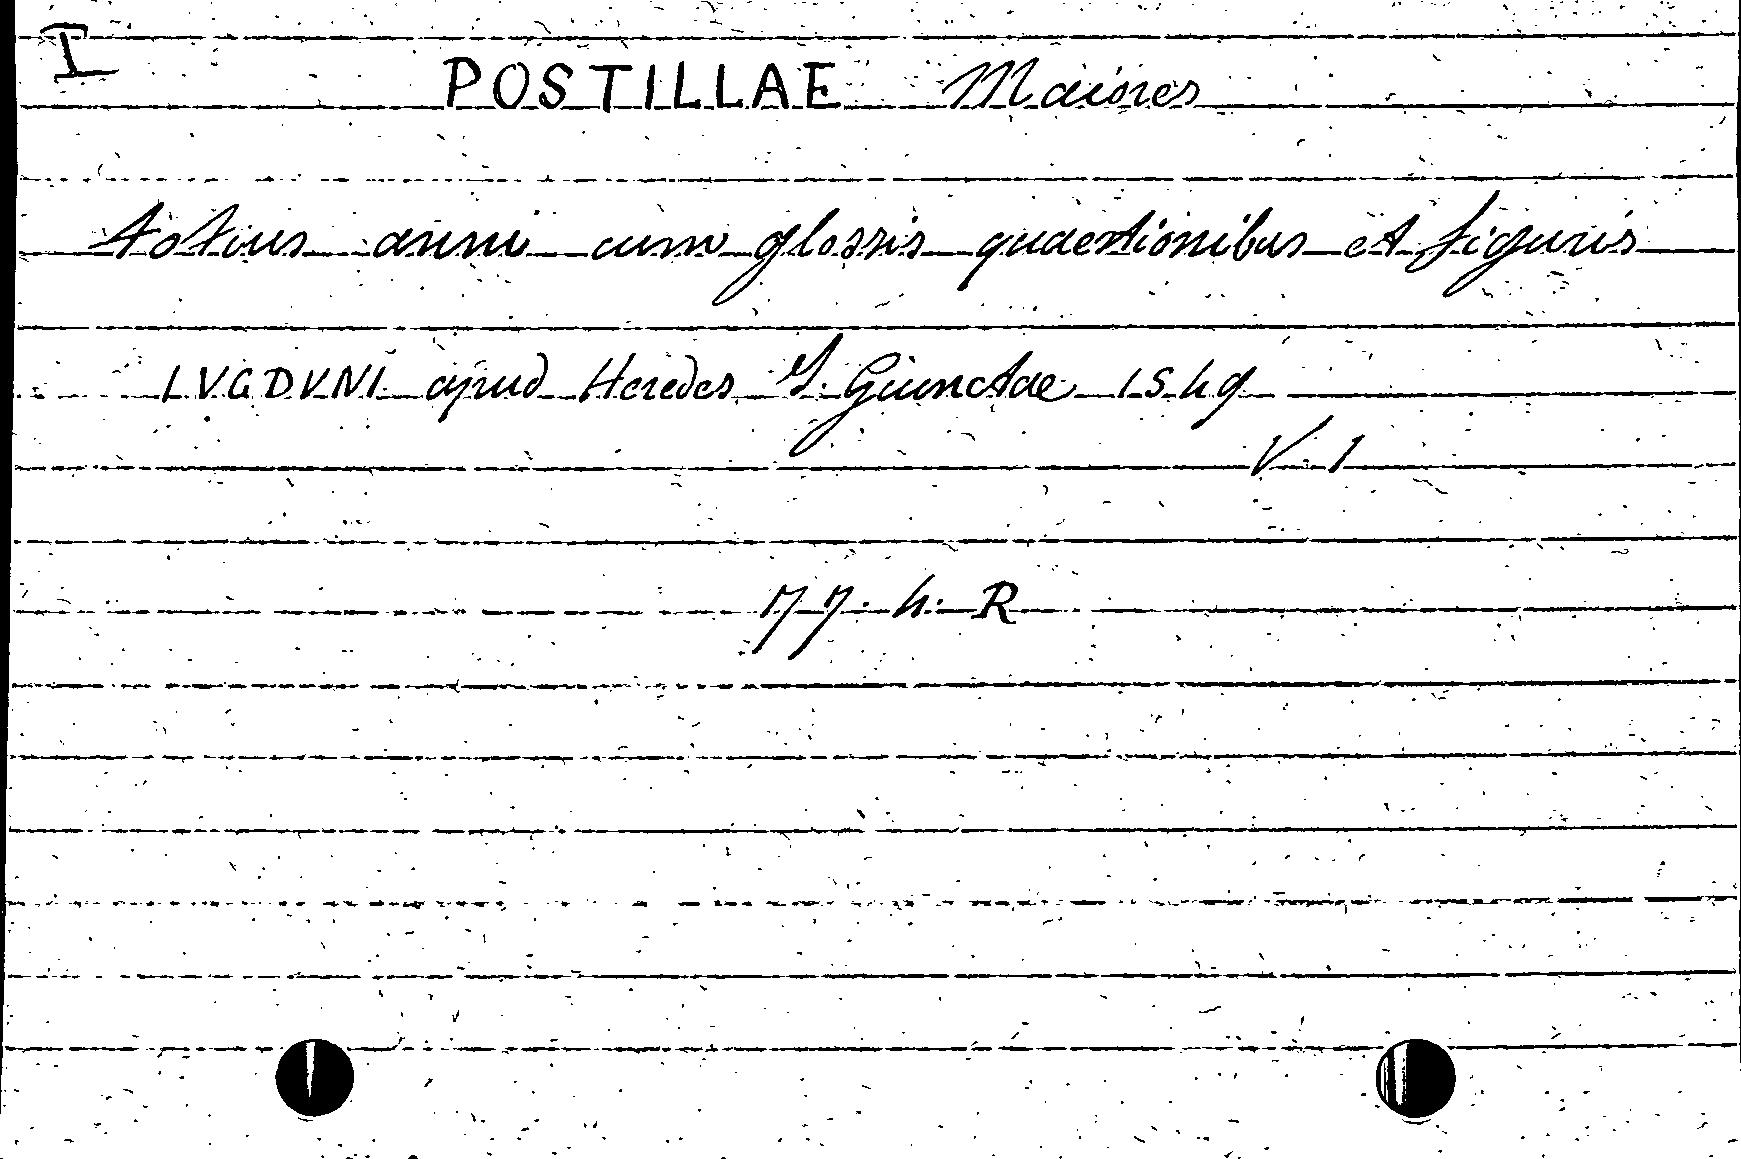 I
POSTILLAE Maiores
totius anni cum glossis quaestionibus et figuris
LVGDVNI apud Heredes I. Giunctae 1549
V. 1
77. 4. R